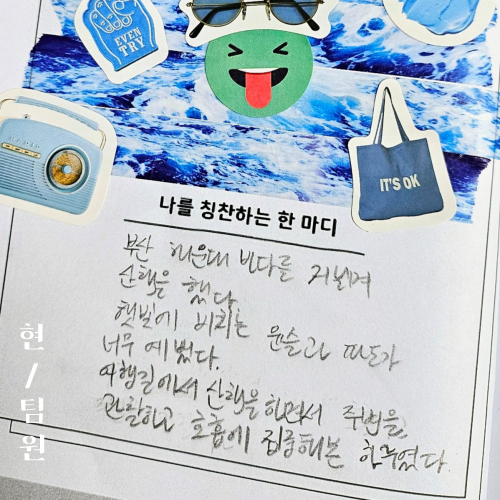 EVEN
TRY
IT'S OK
나를 칭찬하는 한 마디
부산 해운대 바다를 거닐며
산책을 했다.
햇빛에 비치는 윤슬과 파도가
너무 예뻤다.
여행길에서 산책을 하면서 주변을
관찰하고 호흡에 집중해본 하루였다.
현 / 팀원